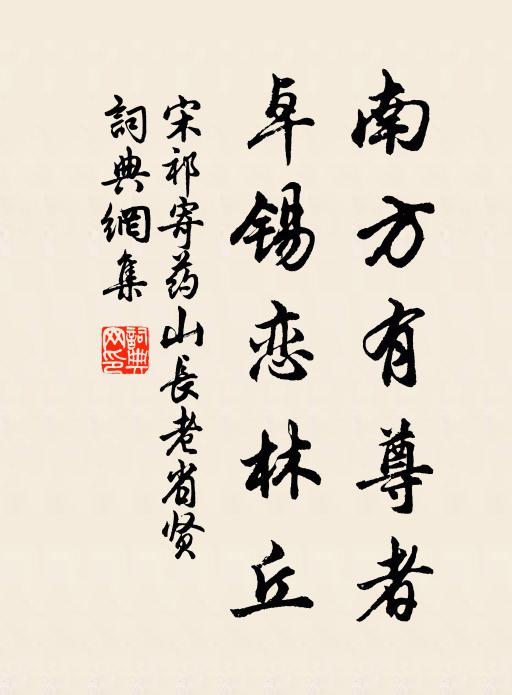 南方有尊者
卓锡恋林丘
宋祁寄药山長老省贤
詞典網集
詞典网印